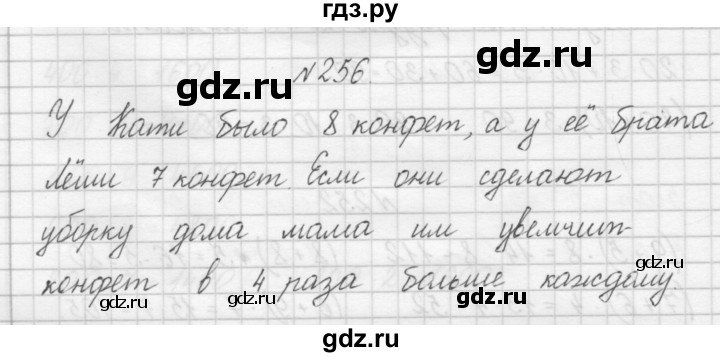 гдз.ру
gdz.ru
gdz.ru
№256.
У Кати было 8 конфет, а у её брата
gdz.ru
Лёши 7 конфет. Если они сделают
gdz.ru
уборку дома мама им увеличит
gdz.ru
конфет в 4 раза больше каждому.
gdz.ru
gdz.ru
gdz.ru